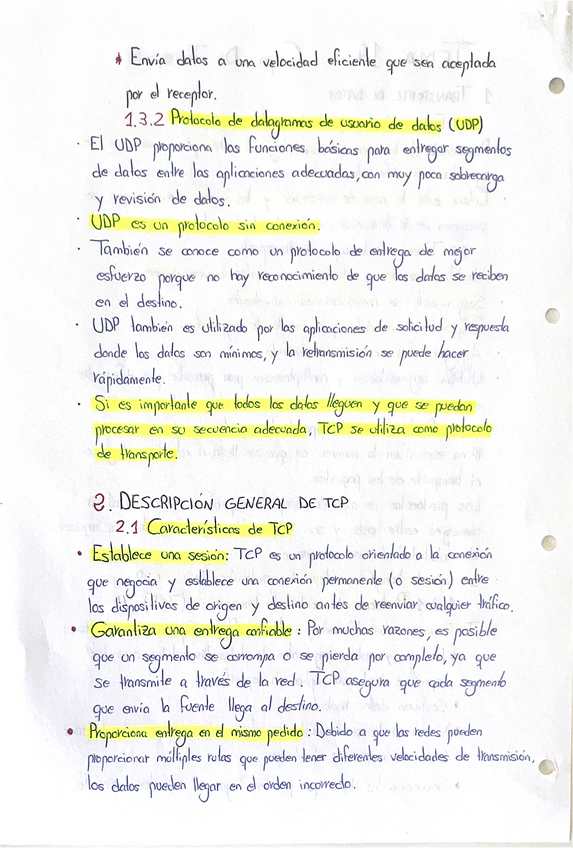 * Envía datos a una velocidad eficiente que sea aceptada
por el receptor.
1.3.2 Protocolo de datagramas de usuario de datos (UDP)
· El UDP proporciona las funciones básicas para entregar segmentos
de datos entre las aplicaciones adecuadas, con muy poca sobrecarga
y revisión de datos.
· UDP es un protocolo sin conexión.
· También se conoce como un protocolo de entrega de mejor
esfuerzo porque no hay reconocimiento de que los datos se reciben
en el destino.
· UDP también es utilizado por las aplicaciones de solicitud y respuesta
donde los datos son mínimos, y la retransmisión se puede hacer
rápidamente.
· Si es importante que todos los datos lleguen y que se puedan
procesar en su secuencia adecuada, TCP se utiliza como protocolo
de transporte.
2. DESCRIPCIÓN GENERAL DE TCP
2.1 Características de TCP
• Establece una sesión: TCP es un protocolo orientado a la conexión
que negocia y establece una conexión permanente (o sesión) entre
los dispositivos de origen y destino antes de reenviar cualquier tráfico.
• Garantiza una entrega confiable: Por muchas razones, es posible
que un segmento se corrompa o se pierda por completo, ya que
se transmite a través de la red. TCP asegura que cada segmento
que envía la fuente llega al destino.
• Proporciona entrega en el mismo pedido: Debido a que las redes pueden
proporcionar múltiples rutas que pueden tener diferentes velocidades de transmisión,
los datos pueden llegar en el orden incorrecto.